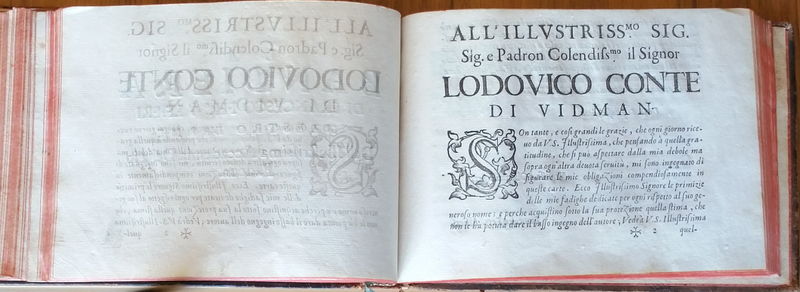 ALL'ILLVSTRISS.MO SIG.
Sig. e Padron Colendiſs.mo il Signor
LODOVICO CONTE
DI VIDMAN
SOn tante, e coſi grandi le grazie, che ogni giorno rice-
uo da V.S. Illuſtriſſima, che penſando à quella gra-
titudine, che ſi può aſpettare dalla mia debole ma
ſopra ogn'altra deuota ſeruitù, mi ſono ingegnato di
figurare le mie obligazioni compendioſamente in
queſte carte. Ecco Illuſtriſſimo Signore le primizie
delle mie fadighe dedicate per ogni riſpetto al ſuo ge-
neroſo nome; e perche acquiſtino ſotto la ſua protezione quella ſtima, che
non le hà potuta dare il baſſo ingegno dell'autore; Vedrà V.S. Illuſtriſſima
2 quel-